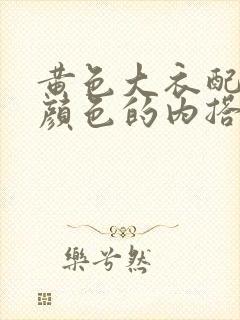 黄色大衣配
颜色的内搭
乐兮然